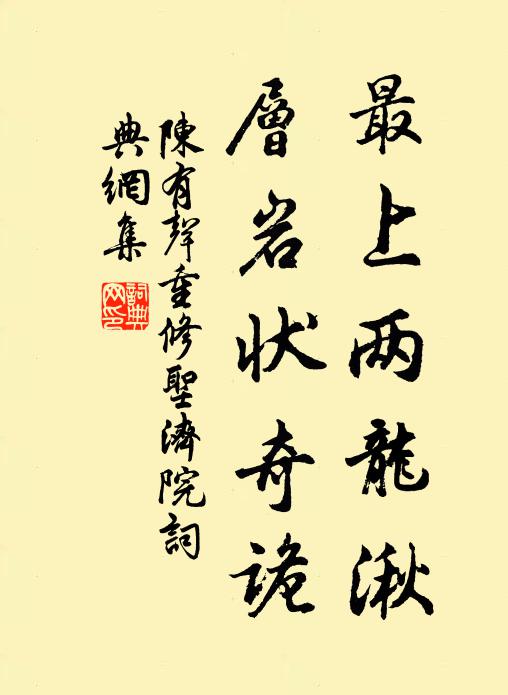 最上两龍湫
層岩状奇詭
陳有聲重修聖濟院詞
典網集
詞典
网印